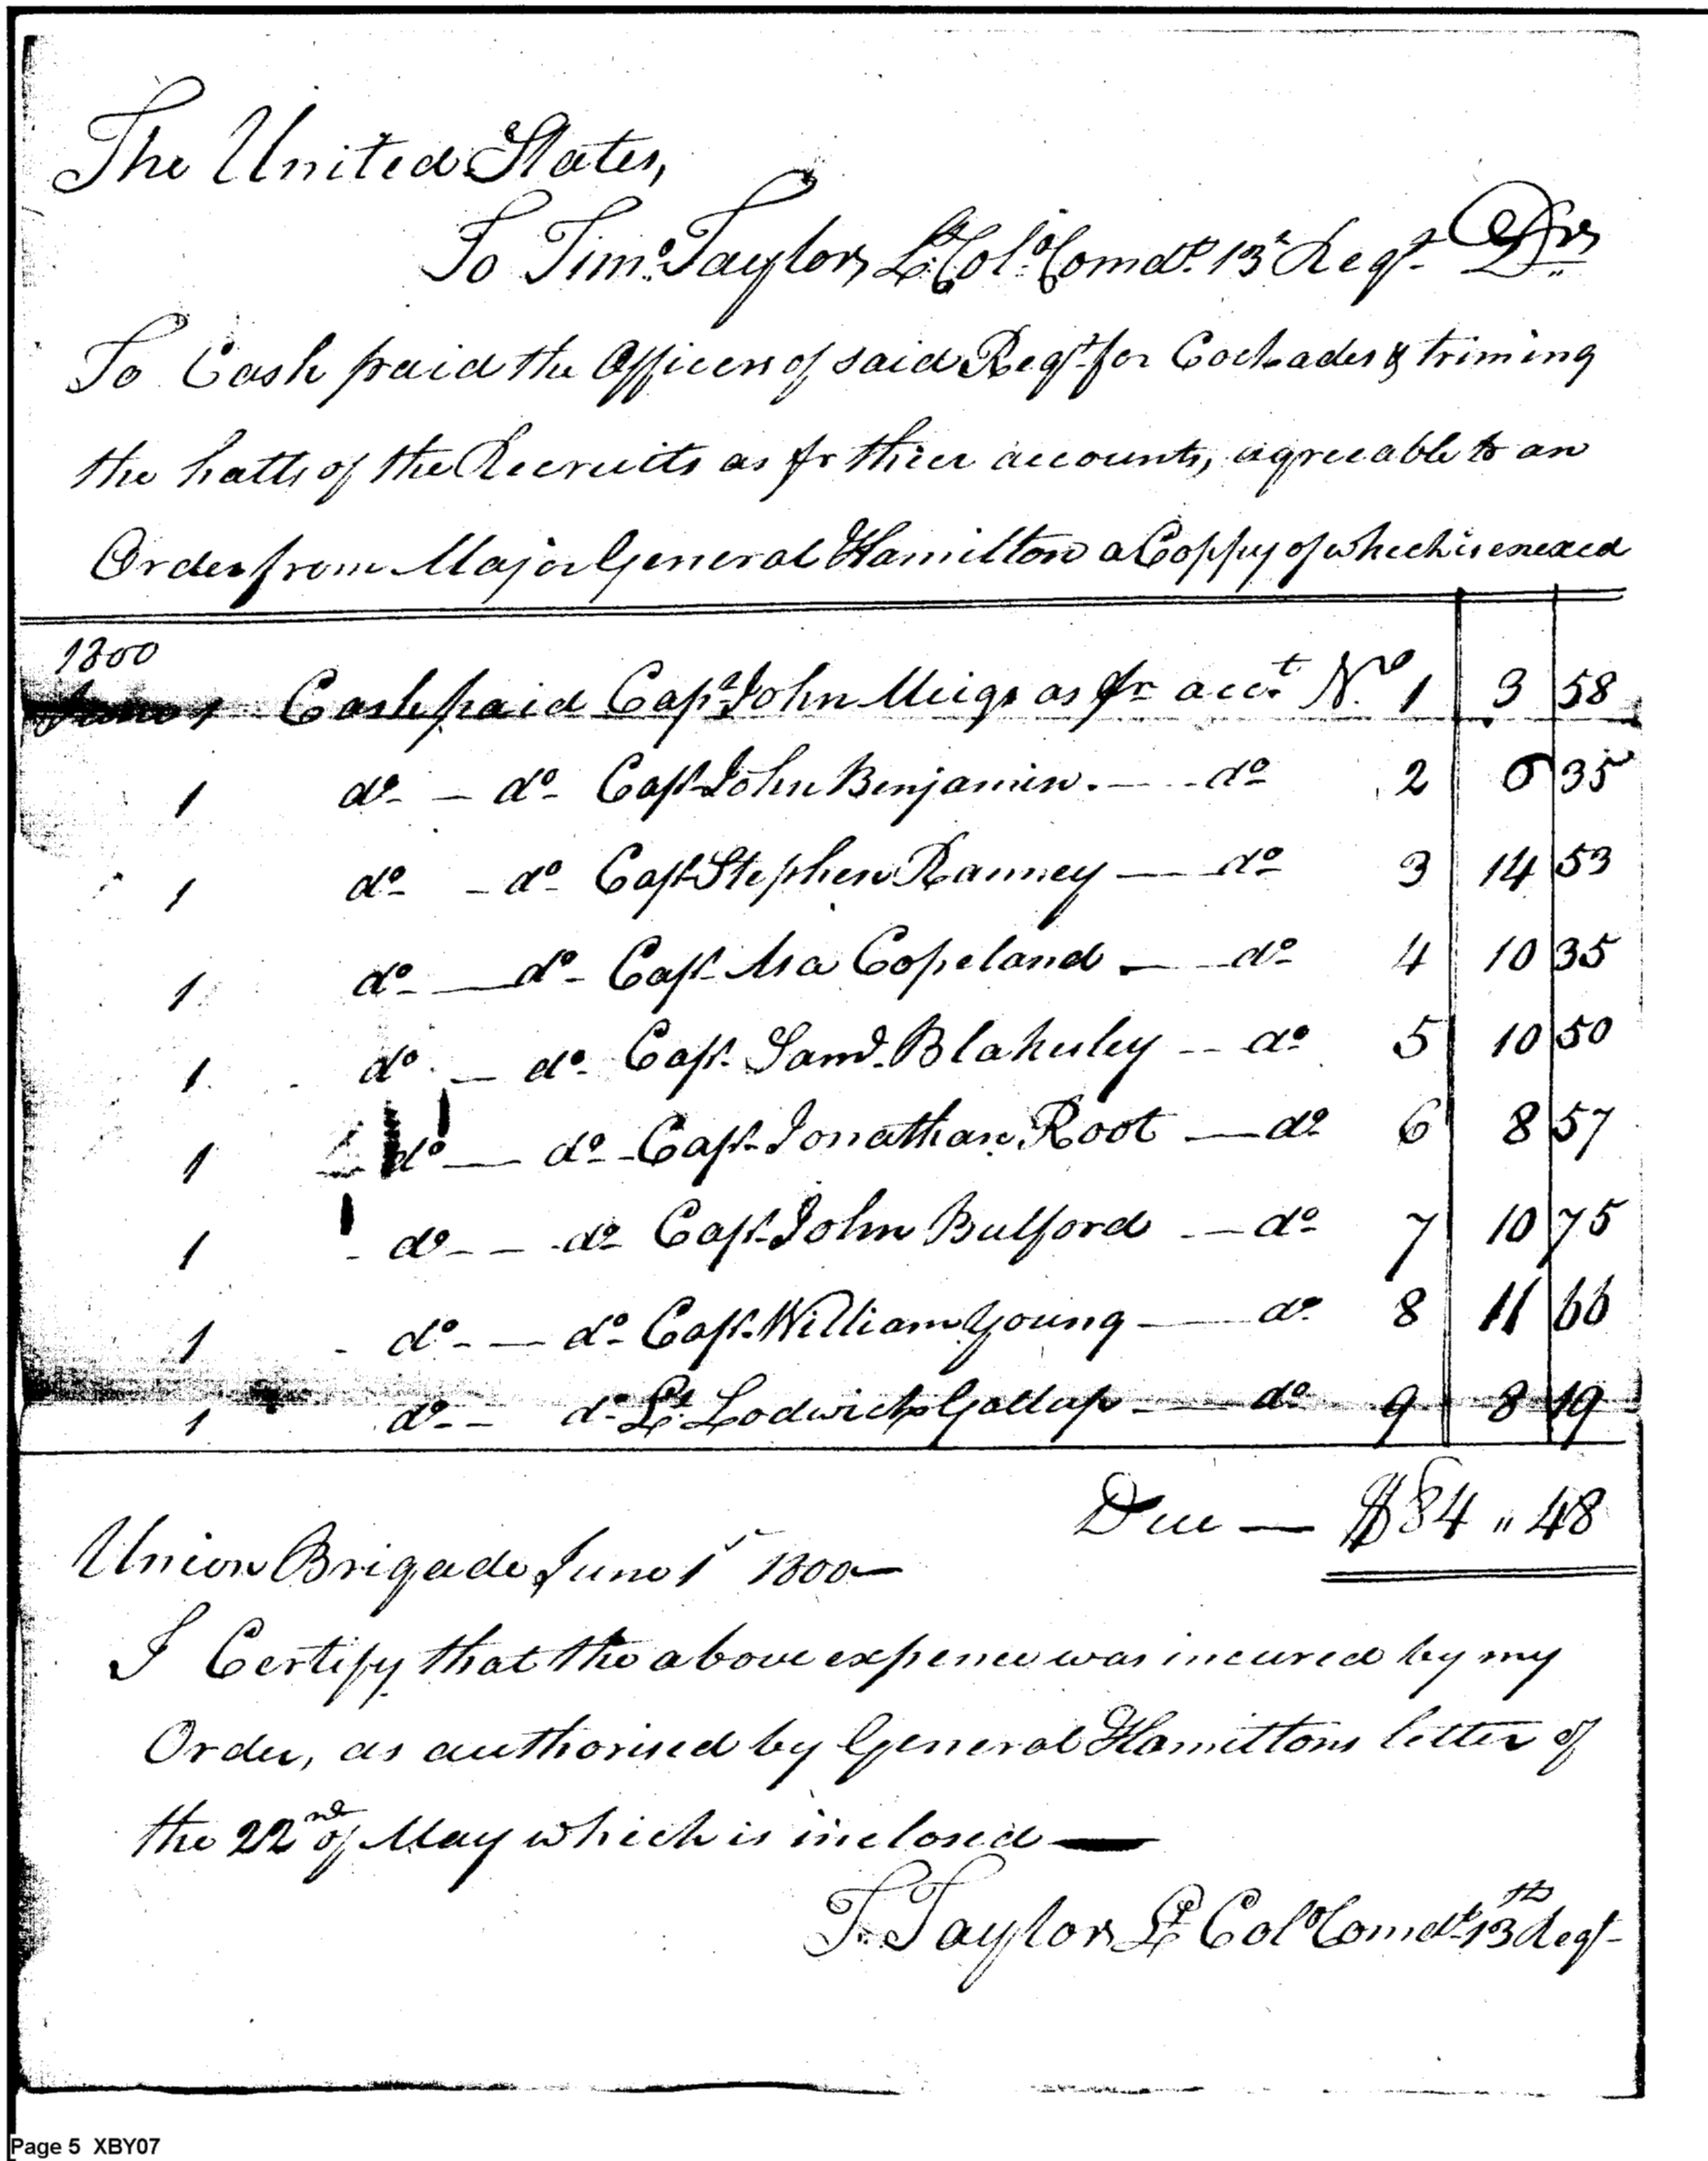 The United States,
To Timo. Taylor, Lt. Colo. Comdt. 13t Regt. Drs
To Cash paid the Officers of said Regt. for Cockades & triming
the hatts of the Recruits as pr thier accounts, agreeable to an
Order from Major General Hamilton a Coppy of which is enexed
1800
June 1 Cash paid Capt. John Meigs as pr acct. No. 1 3 58
1 do - do Capt. John Benjamin. - do 2 6 35
1 do - do Capt. Stephen Ranney - do 3 14 53
1 do - do Capt. Asa Copeland - do 4 10 35
1 do - do Capt. Saml. Blakesley - do 5 10 50
1 do - do Capt. Jonathan Root - do 6 8 57
1 do - do Capt. John Bulford - do 7 10 75
1 do - do Capt. William Young - do 8 11 66
1 do - do Lt. Lodwick Gallup - do 9 8 19
Due — $84 " 48
Union Brigade June 1st 1800 —
I Certify that the above expence was incured by my
Order, as authorised by General Hamiltons letter of
the 22nd of May which is inclosed —
T. Taylor, Lt Colo Comdt. 13th Regt
Page 5 XBY07